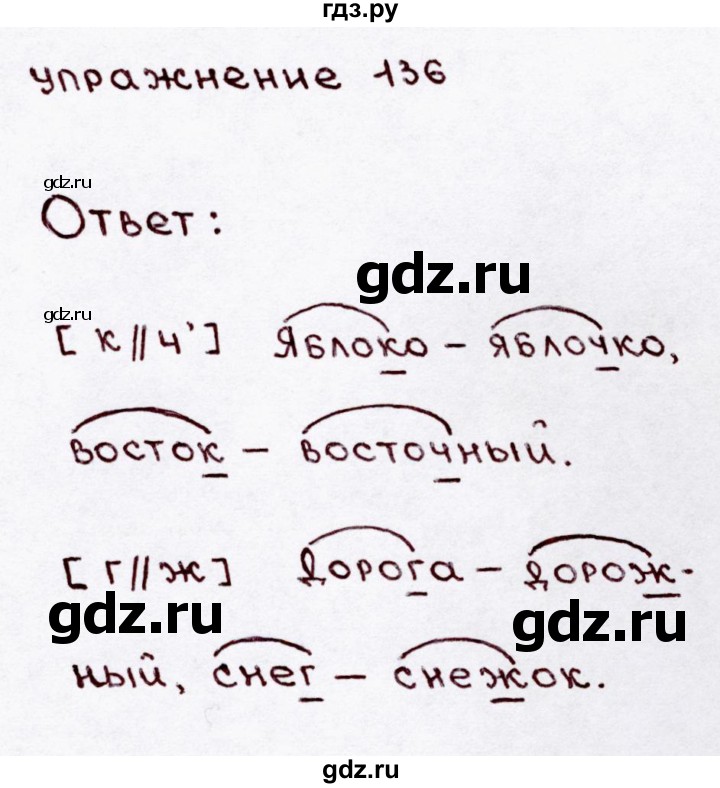 гдз.ру
упражнение 136
gdz.ru
Ответ:
gdz.ru
gdz.ru
[к//ч'] Яблоко – яблочко,
восток – восточный.
[г//ж] Дорога – дорож-
gdz.ru
gdz.ru
ный, снег – снежок.
gdz.ru